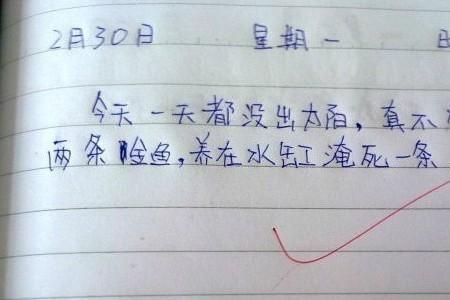 2月30日 星期一
今天一天都没出太阳，真不
两条金鱼，养在水缸淹死一条